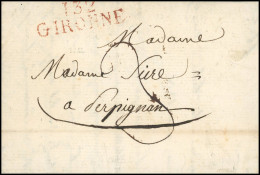 132
GIRONNE
Madame
Madame
a Perpignan
2